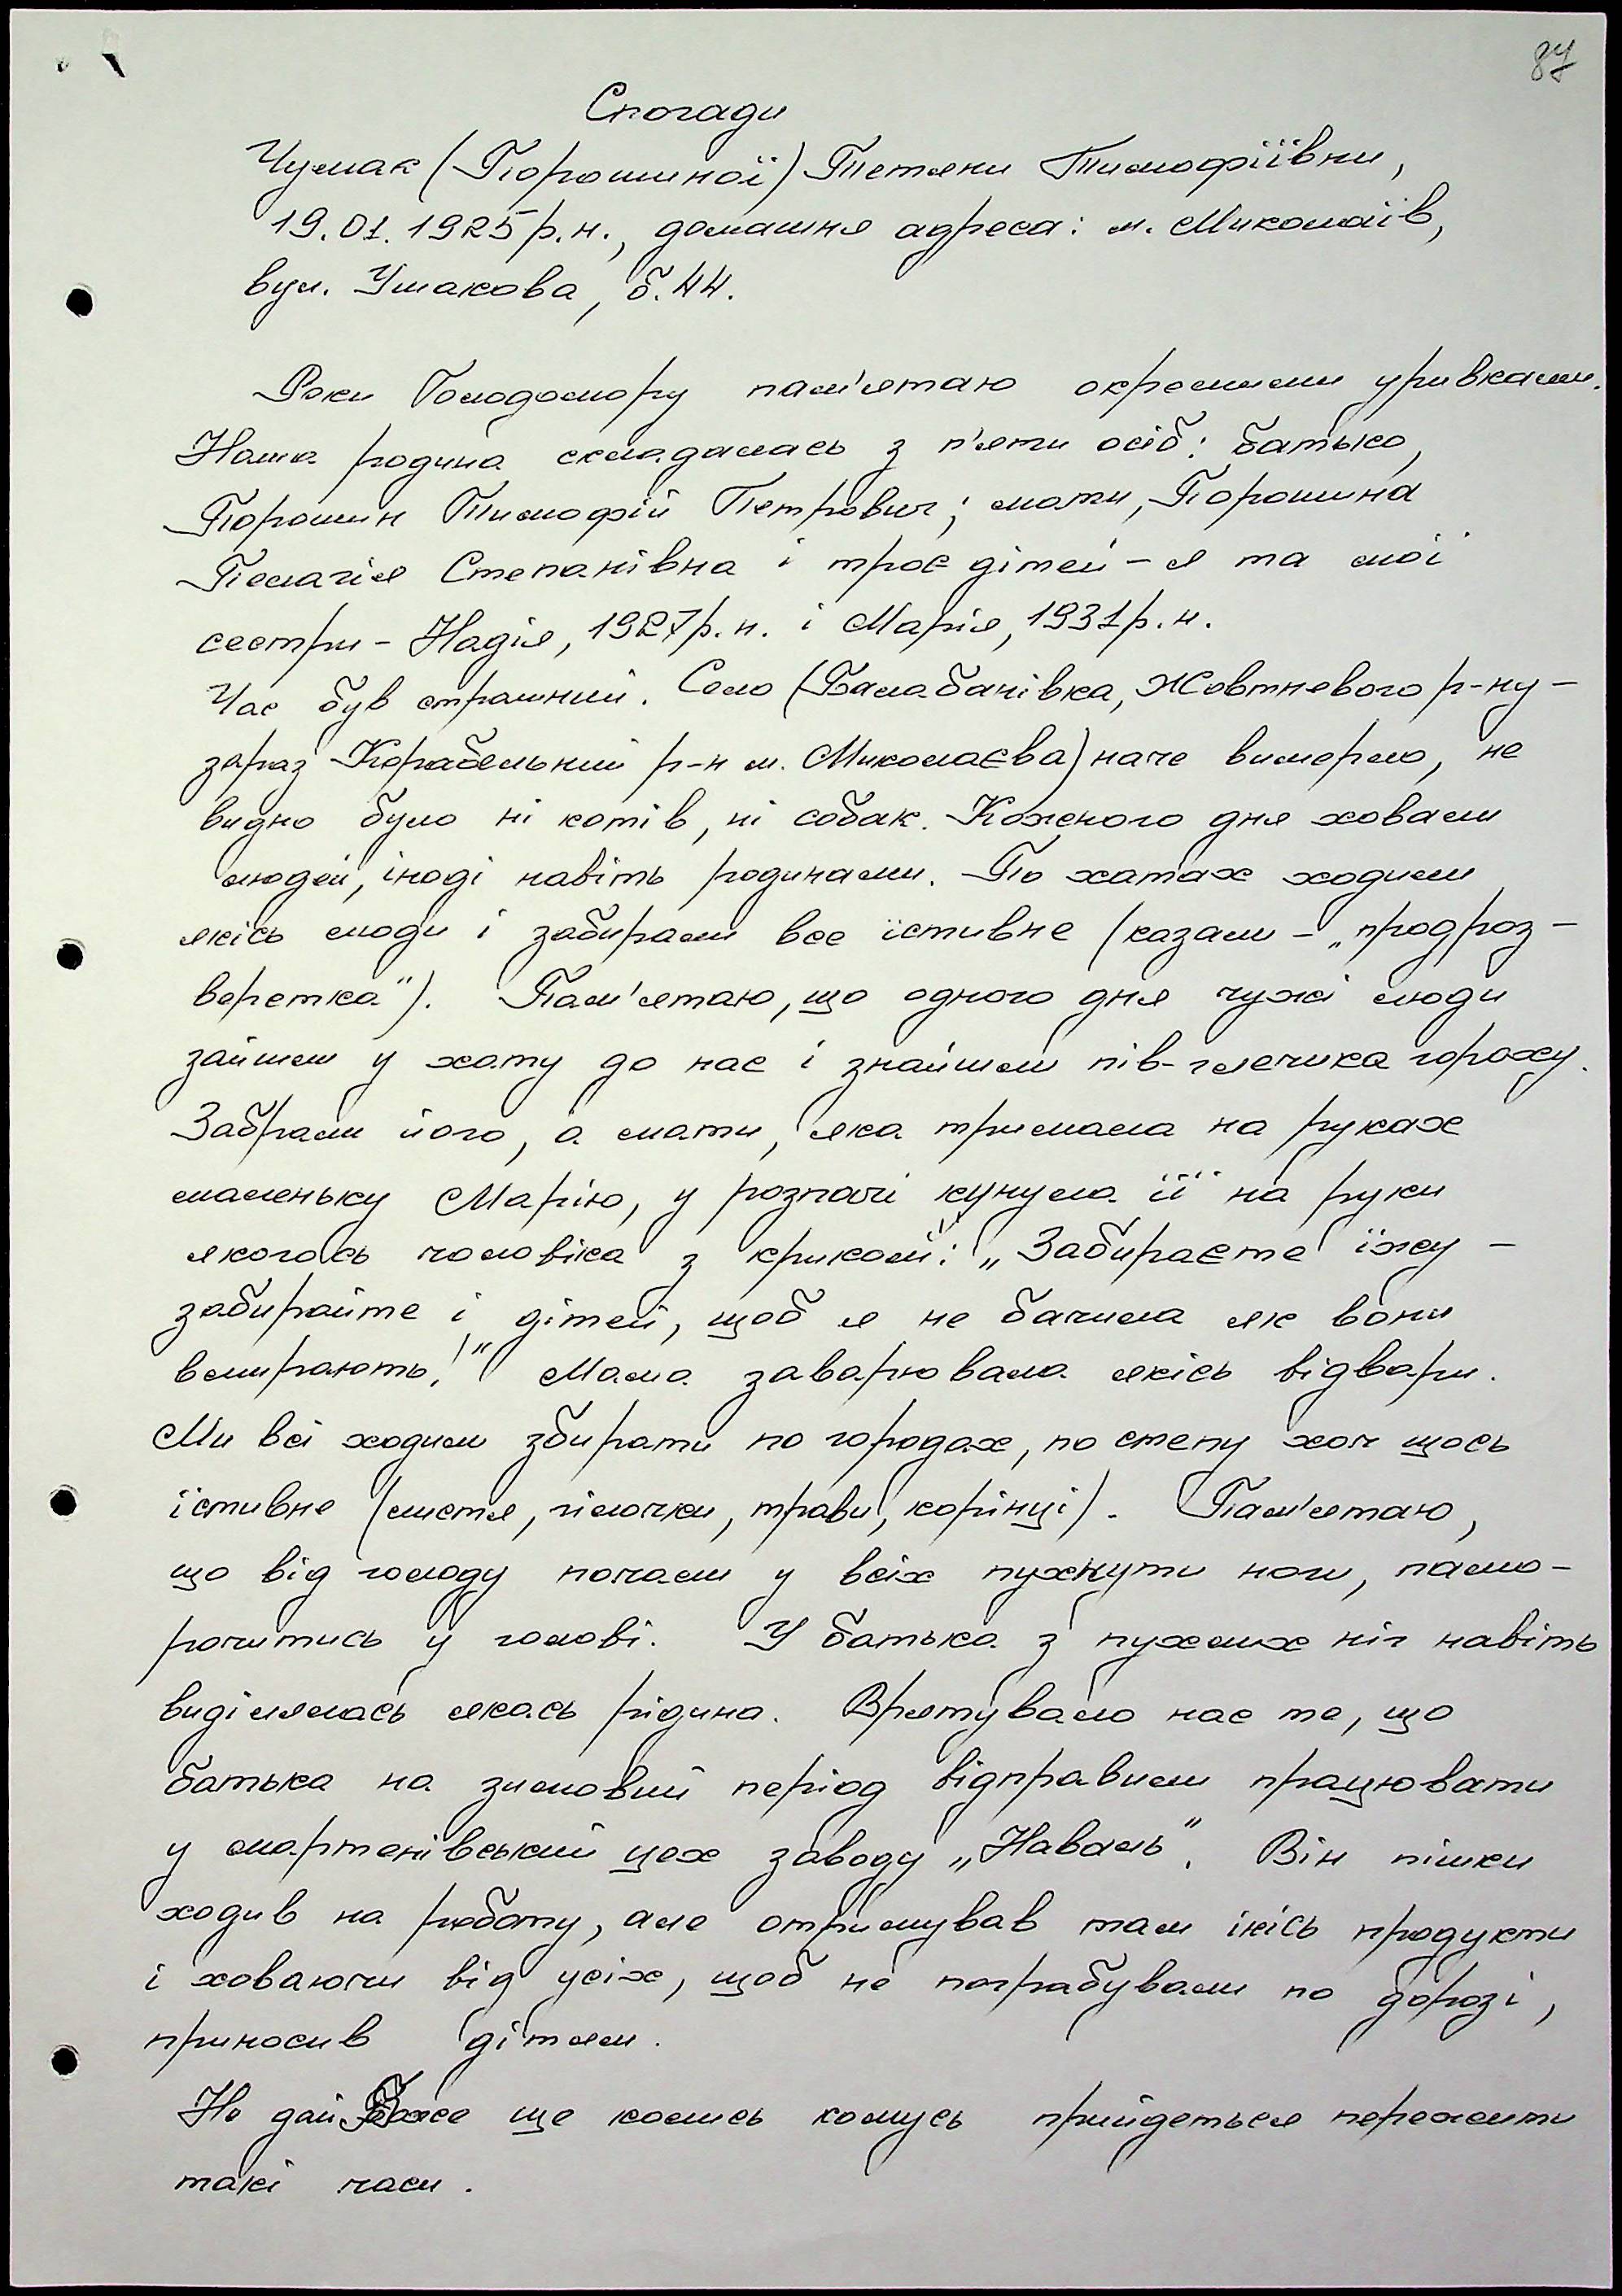 87
Спогади
Чумак (Порошиної) Тетяни Тимофіївни,
19.01.1925 р.н., домашня адреса: м. Миколаїв,
вул. Ушакова, б. 44.
Роки Голодомору пам'ятаю окремими уривками.
Наша родина складалась з п'яти осіб: батько,
Порошин Тимофій Петрович; мати, Порошина
Пелагія Степанівна і троє дітей – я та мої
сестри – Надія, 1927 р.н. і Марія, 1931 р.н.
Час був страшний. Село (Балабанівка, Жовтневого р-ну –
зараз Корабельний р-н м. Миколаєва) наче вимерло, не
видно було ні котів, ні собак. Кожного дня ховали
людей, іноді навіть родинами. По хатах ходили
якісь люди і забирали все їстивне (казали – „продроз-
верстка"). Пам'ятаю, що одного дня чужі люди
зайшли у хату до нас і знайшли пів-глечика гороху.
Забрали його, а мати, яка тримала на руках
маленьку Марію, у розпачі кинула її на руки
якогось чоловіка з криком: „Забираєте їжу –
забирайте і дітей, щоб я не бачила як вони
вмирають!" Мама заварювала якісь відвари.
Ми всі ходили збирати по городах, по степу хоч щось
їстивне (листя, гілочки, трави, корінці). Пам'ятаю,
що від голоду почали у всіх пухнути ноги, памо-
рочитись у голові. У батька з пухлих ніг навіть
виділялась якась рідина. Врятувало нас те, що
батька на зимовий період відправили працювати
у мартенівський цех заводу „Наваль". Він пішки
ходив на роботу, але отримував там якісь продукти
і ховаючи від усіх, щоб не пограбували по дорозі,
приносив дітям.
Не дай Боже ще колись комусь прийдеться пережити
такі часи.